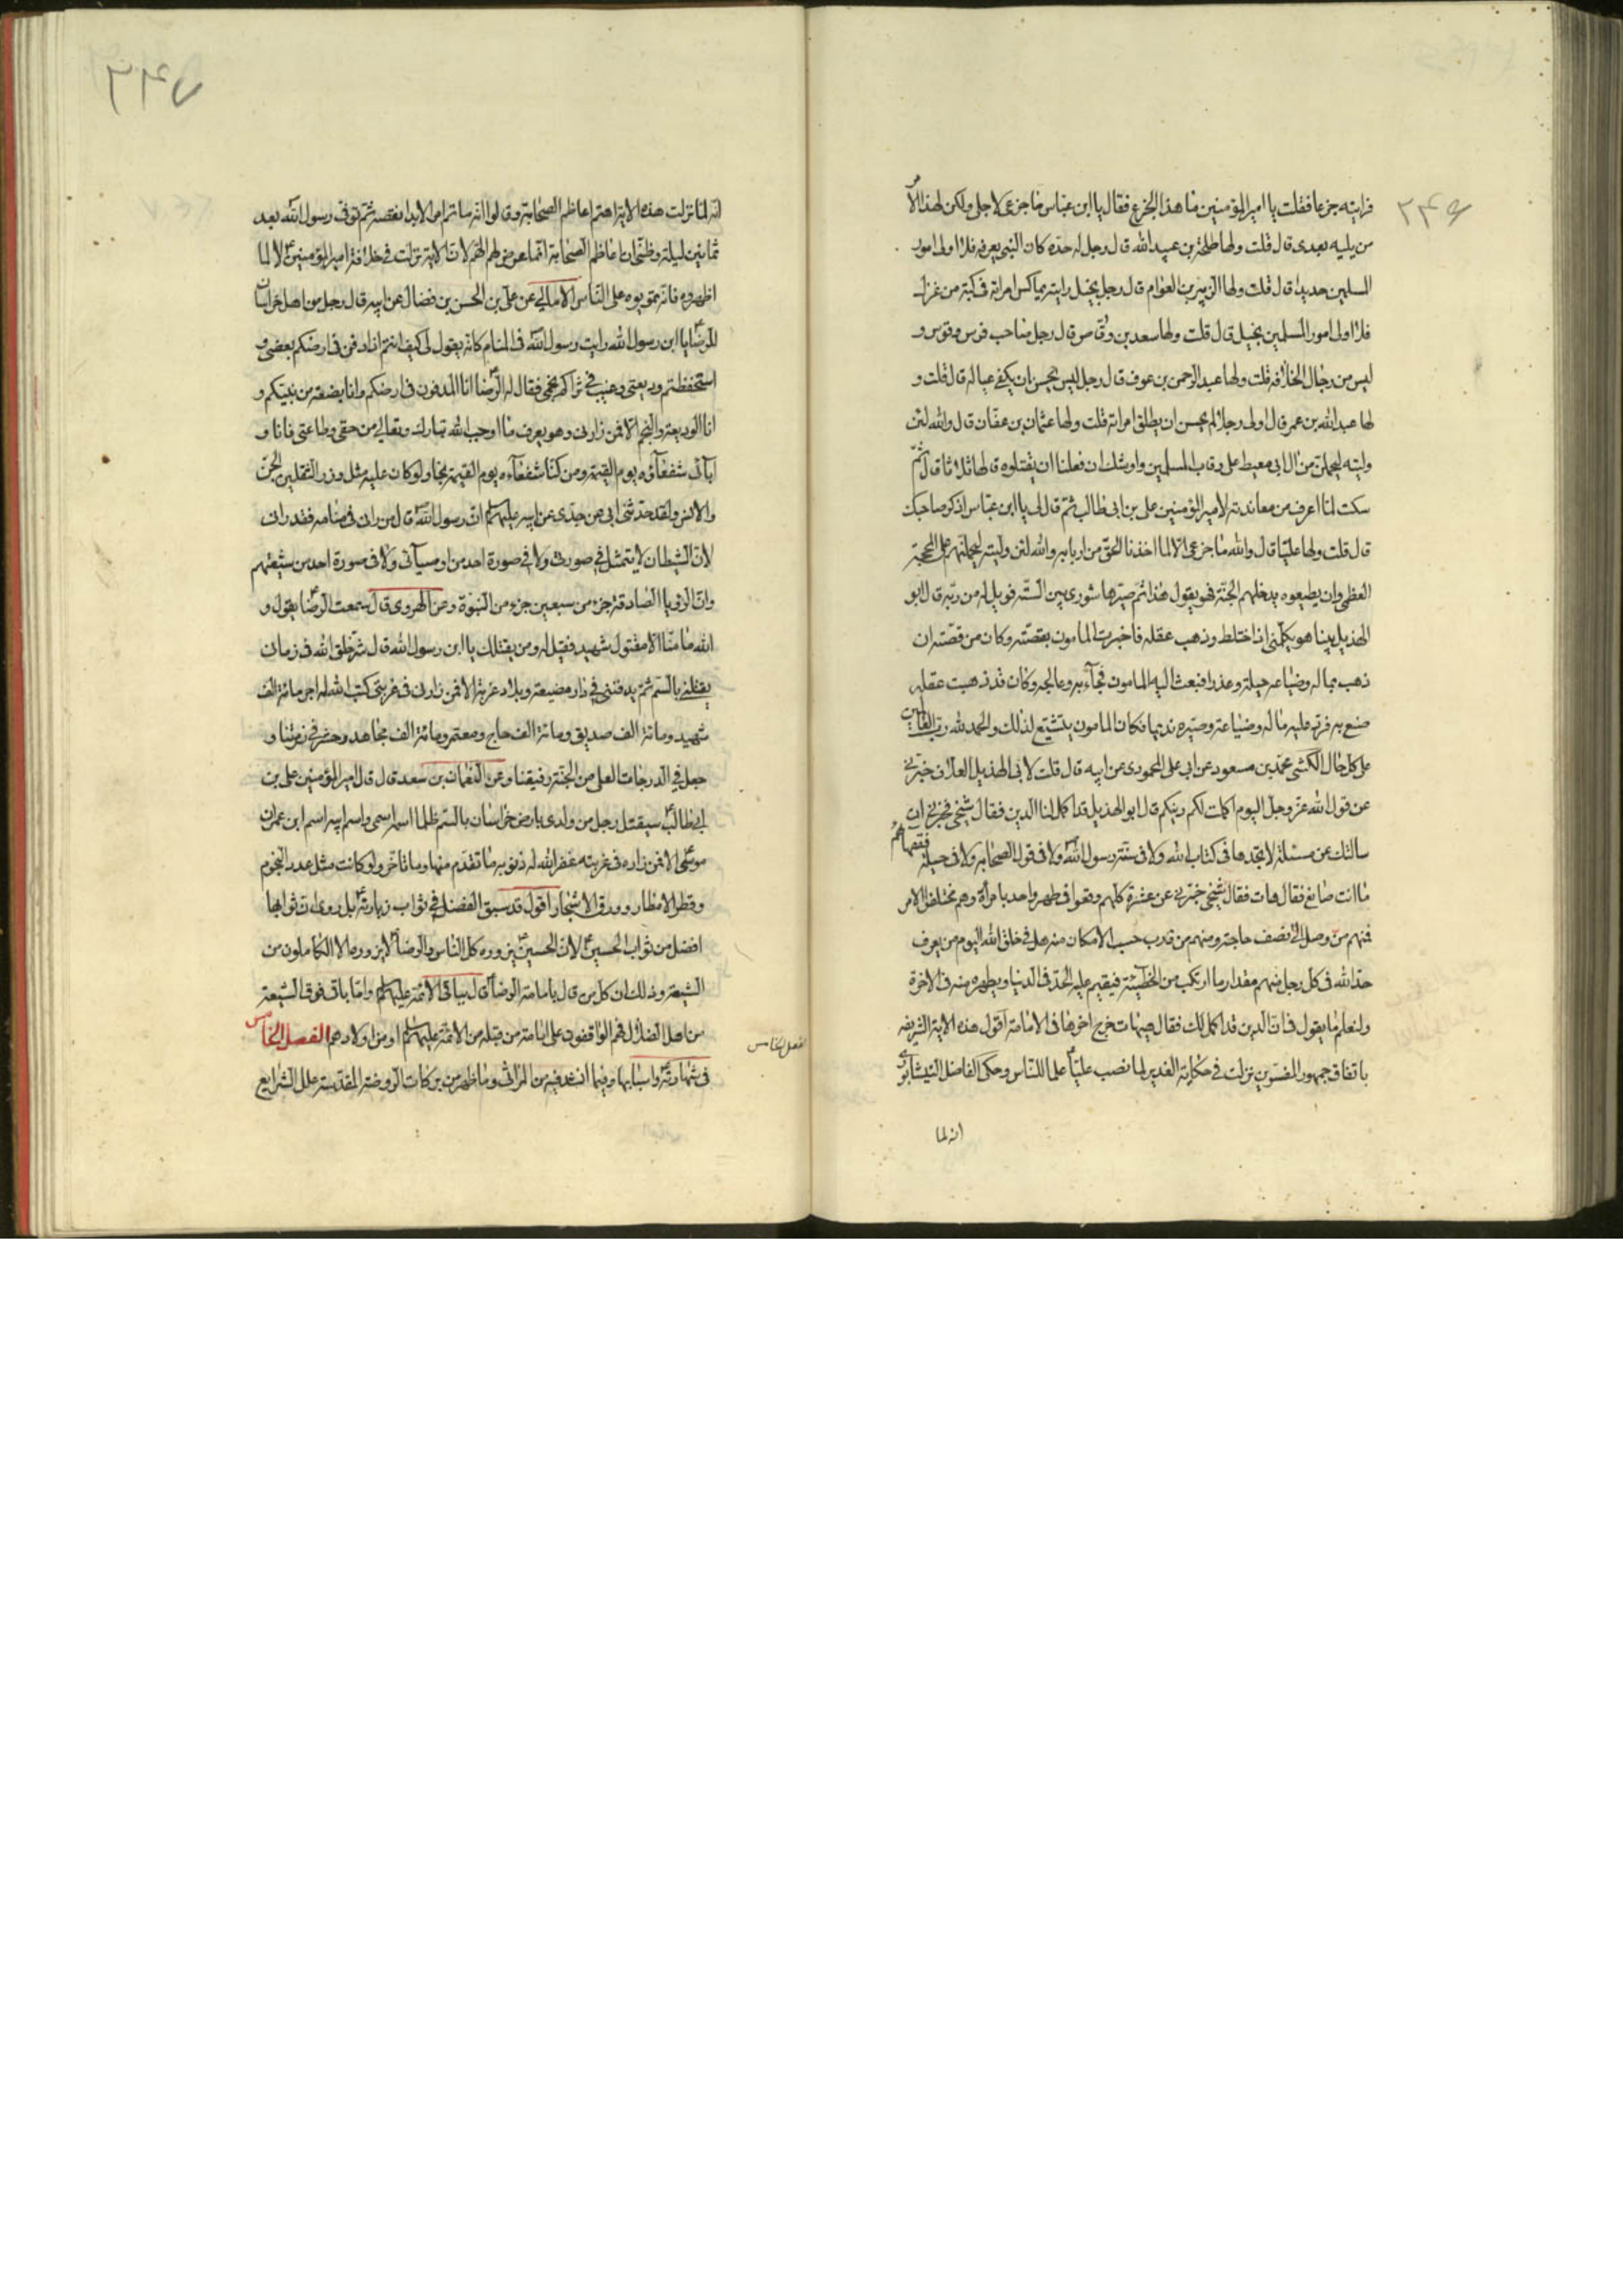 ۲۴۶
فرايته جزعا فقلت يا امير المؤمنين ما هذا الجزع فقال يا ابن عباس ما جزعى لاجلى ولكن لهذا الامر
من يليه بعدى قال قلت ولها طلحة بن عبيد الله قال رجل له حدة كان النبى يعرفه فلا اولى امور
المسلمين حديدا قال قلت ولها الزبير بن العوام قال رجل بخيل رايته يماكس امراته فى كبة من غزل
فلا اولى امور المسلمين بخيل قال قلت ولها سعد بن وقاص قال رجل صاحب فرس وقوس و
ليس من رجال الخلافة قلت ولها عبد الرحمن بن عوف قال رجل ليس يحسن ان يكفى عياله قال قلت و
لها عبد الله بن عمر قال اولى رجلا لم يحسن ان يطلق امراته قلت ولها عثمان بن عفان قال والله لئن
وليته ليحملن من ال ابى معيط على رقاب المسلمين واوشك ان فعلنا ان يقتلوه قالها ثلاثا قال ثم
سكت لما اعرف من معاندته لامير المؤمنين على بن ابى طالب ثم قال لى يا ابن عباس اذكر صاحبك
قال قلت ولها عليا قال والله ما جزعى الا لما اخذنا الحق من اربابه والله لئن وليته ليحملنهم على المحجة
العظمى وان يطيعوه يدخلهم الجنة فهو يقول هذا ثم صيرها شورى بين الستة فويل له من ربه قال ابو
الهذيل بينا هو يكلمنى اذ اختلط وذهب عقله فاخبرت المامون بقصته وكان من قصته ان
ذهب بماله وضياعه حيلة وغدرا فبعث اليه المامون فجاء به وعالجه وكان قد ذهبت عقله
صنع به فرد عليه ماله وضياعه وصيره نديما فكان المامون يتشيع لذلك والحمد لله رب العالمين
على كل حال الكشى محمد بن مسعود عن ابى على المحمودى عن ابيه قال قلت لابى الهذيل العلاف خبرنى
عن قول الله عز وجل اليوم اكملت لكم دينكم قال ابو الهذيل قد اكمل لنا الدين فقال شيخى فخبرنى ان
سالتك عن مسئلة لا تجدها فى كتاب الله ولا فى سنة رسول الله ولا فى قول الصحابة ولا فى حيلة فقهائهم
ما انت صانع فقال هات فقال شيخى خبرنى عن عشرة كلهم وقعوا فى طهر واحد بامرأة وهم مختلفوا الامر
فمنهم من وصل الى نصف حاجته ومنهم من قارب حسب الامكان منه هل فى خلق الله اليوم من يعرف
حد الله فى كل رجل منهم مقدار ما ارتكب من الخطيئة فيقيم عليه الحد فى الدنيا ويطهره منه فى الاخرة
ولنعلم ما يقول فى ان الدين قد اكمل لك فقال هيهات خرج اخرها فى الامامة اقول هذه الاية الشريفة
باتفاق جمهور المفسرين نزلت فى حكاية الغدير لما نصب عليا علما للناس وحكى الفاضل النيشابورى
انه لما
۲۴۷
انه لما نزلت هذه الاية اهتم اعاظم الصحابة وقالوا انه ما تم امر الا بدا نقصه ثم توفى رسول الله بعد
ثمانين ليلة وظنى ان اعاظم الصحابة انما عرض لهم الهم لان الاية نزلت فى خلافة امير المؤمنين لا لما
اظهروه فانه تمويه على الناس الامالى عن على بن الحسن بن فضال عن ابيه قال رجل من اهل خراسان
للرضا يا ابن رسول الله رايت رسول الله فى المنام كانه يقول لى كيف انتم اذا دفن فى ارضكم بعضى و
استحفظتم وديعتى وغيب فى ثراكم نجمى فقال له الرضا انا المدفون فى ارضكم وانا بضعة من نبيكم و
انا الوديعة والنجم الا فمن زارنى وهو يعرف ما اوجب الله تبارك وتعالى من حقى وطاعتى فانا و
آبائى شفعاؤه يوم القيمة ومن كنا شفعاءه يوم القيمة نجا ولو كان عليه مثل وزر الثقلين الجن
والانس ولقد حدثنى ابى عن جدى عن ابيه عليهم السلام ان رسول الله قال من رانى فى منامه فقد رانى
لان الشيطان لا يتمثل فى صورتى ولا فى صورة احد من اوصيآئى ولا فى صورة احد من شيعتهم
وان الرؤيا الصادقة جزء من سبعين جزء من النبوة وعن الهروى قال سمعت الرضا يقول و
الله ما منا الا مقتول شهيد فقيل له ومن يقتلك يا ابن رسول الله قال شر خلق الله فى زمانى
يقتلنى بالسم ثم يدفننى فى دار مضيعة وبلاد غربة الا فمن زارنى فى غربتى كتب الله له اجر مائة الف
شهيد ومائة الف صديق ومائة الف حاج ومعتمر ومائة الف مجاهد وحشر فى زمرتنا و
جعل فى الدرجات العلى من الجنة رفيقنا وعن النعمان بن سعد قال قال امير المؤمنين على بن
ابى طالب سيقتل رجل من ولدى بارض خراسان بالسم ظلما اسمه اسمى واسم ابيه اسم ابن عمران
موسى الا فمن زاره فى غربته غفر الله له ذنوبه ما تقدم منها وما تاخر ولو كانت مثل عدد النجوم
وقطر الامطار وورق الاشجار اقول قد سبق الفضل فى ثواب زيارته بل روى ان ثوابها
افضل من ثواب الحسين لان الحسين يزوره كل الناس والرضا لا يزوره الا الكاملون من
الشيعة وذلك ان كل من قال بامامة الرضا قال بباقى الائمة عليهم السلام واما باقى فرق الشيعة
من اهل الضلال فهم الواقفون على امامة من قبله من الائمة عليهم السلام او من اولادهم الفصل الخامس
فى شهادته واسبابها وفيما انشد فيه من المراثى وما ظهر من بركات الروضة المقدسة علل الشرايع
الفصل الخامس